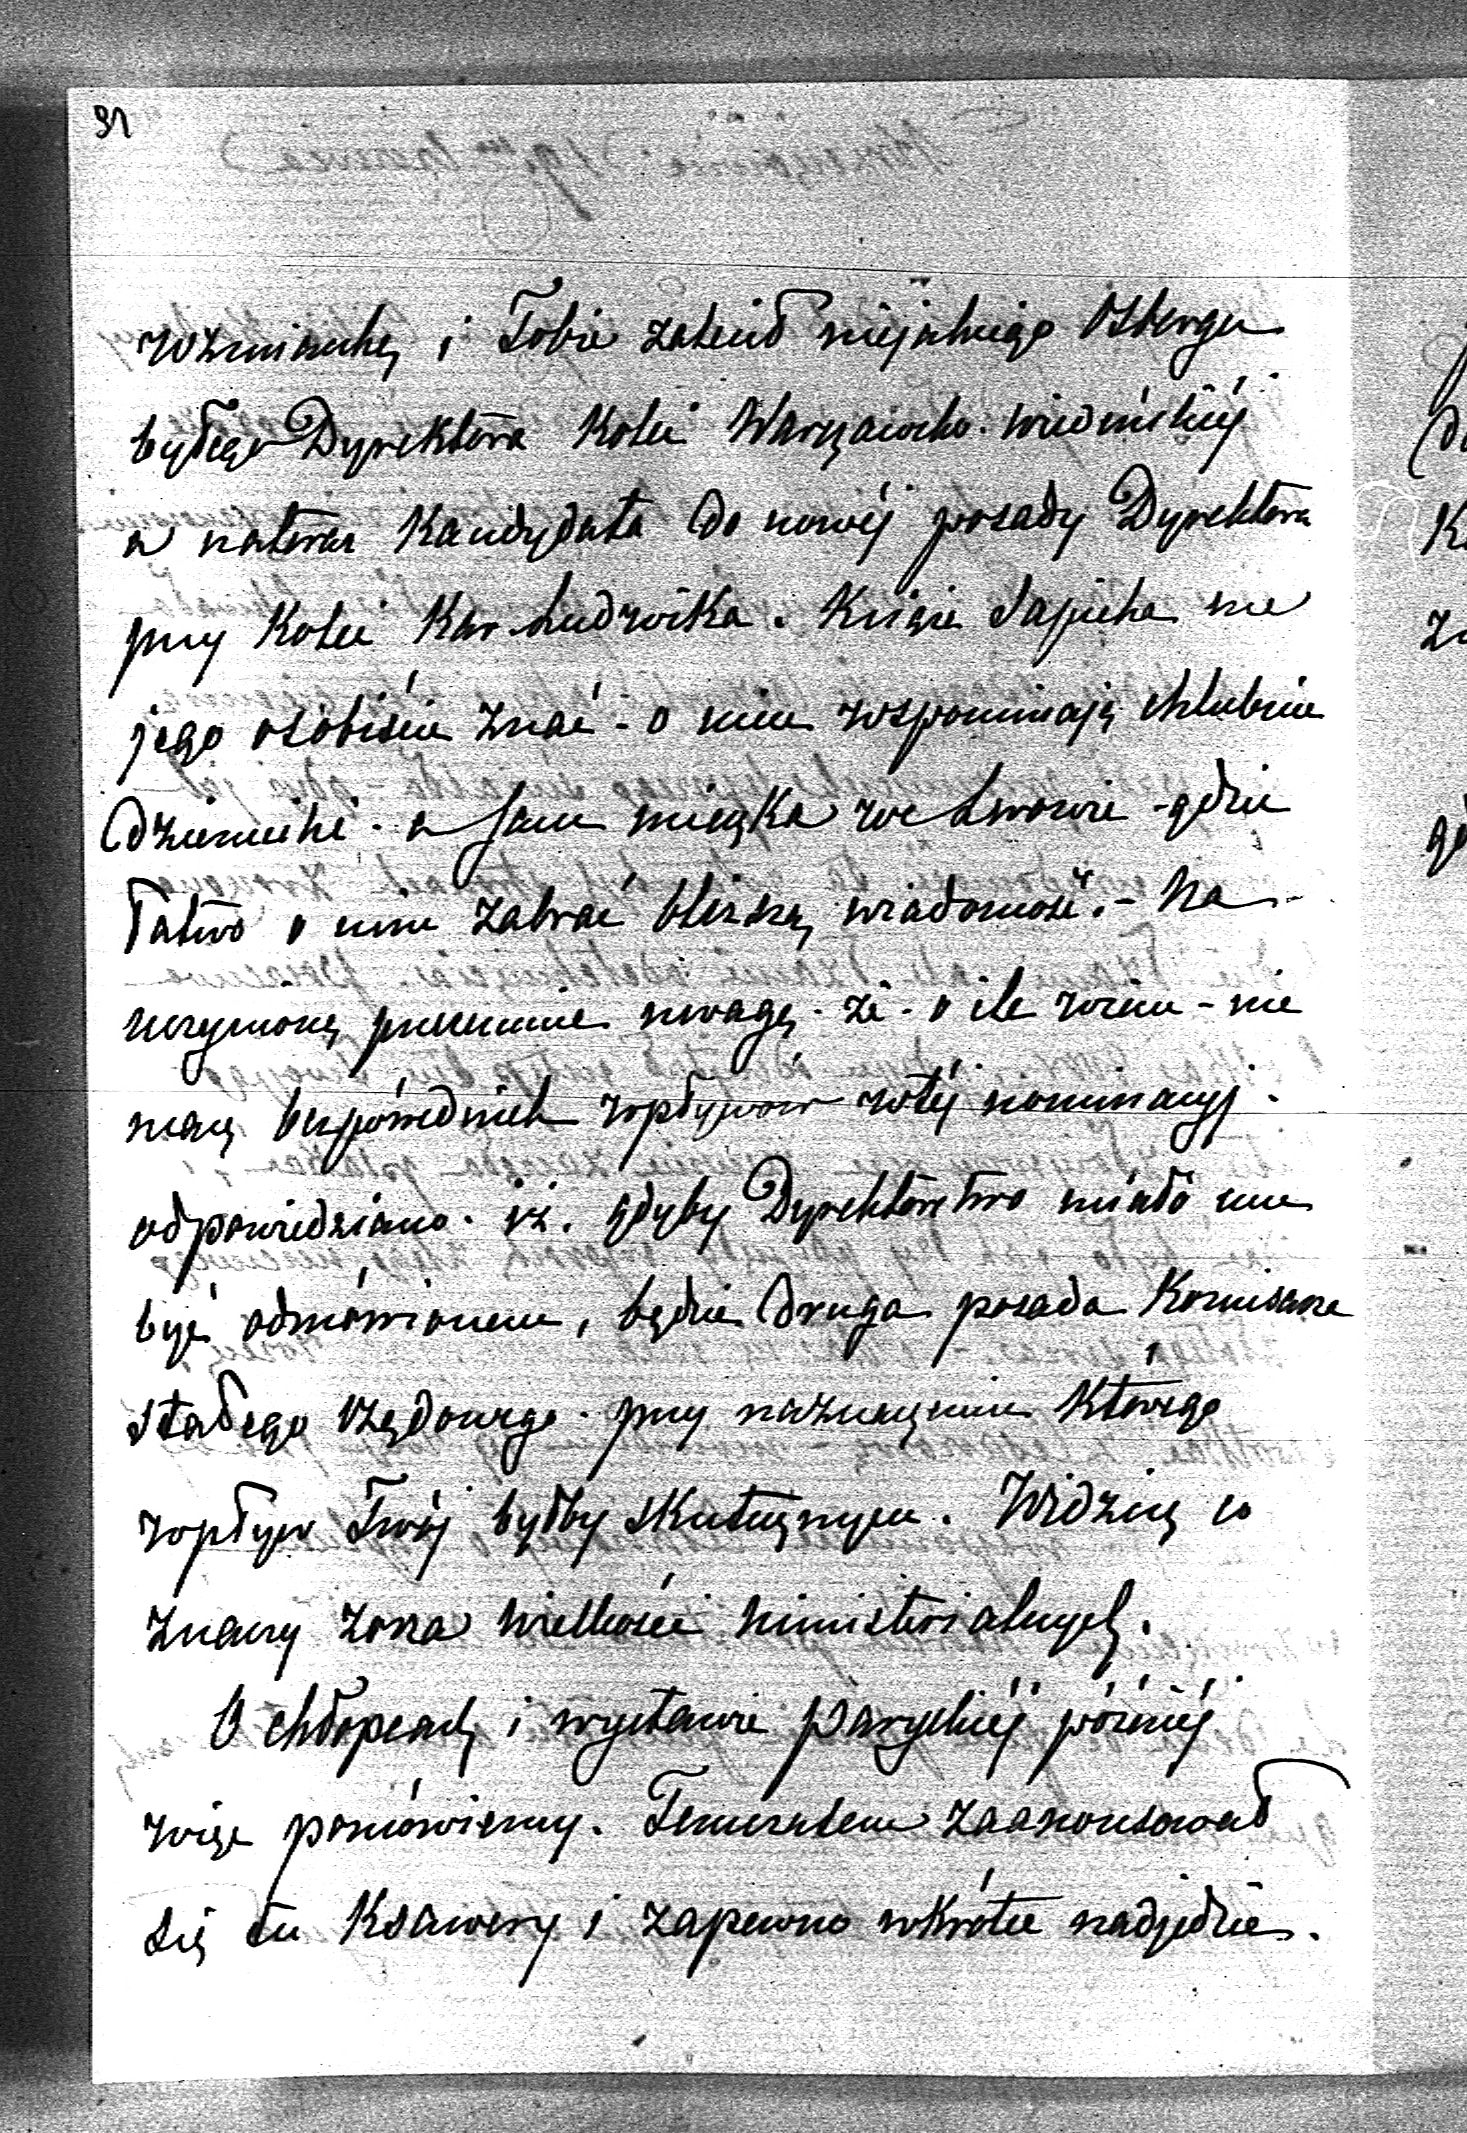 91
wzmiankę i Tobie zalecił niejakiego Osberga
byłego Dyrektora Kolei Warszawsko-wiedeńskiej
a nateraz Kandydata do nowéj posady Dyrektora
przy Kolei Kar. Ludwika. Książe Sapieha ma
jego osobiście znać - o nim wspominają chlubnie
dzienniki - a sam mieszka we Lwowie - gdzie
łatwo o nim zabrać bliższą wiadomość. - Na
uczynioną przezemnie uwagę - że - o ile wiem - nie
masz bezpośrednich wpływów w téj nominacyj -
odpowiedziano - iż - gdyby Dyrektorstwo miało mu
być odmówionem, będzie druga posada Komisarza
stałego rządowego - przy naznaczeniu którego
wpływ Twój byłby skutecznym. Widzisz co
znaczy łaska wielkości ministerialnych.
O chłopcach i wystawie paryskiéj późniéj
więc pomówiemy. Temczasem zaanonsował
się tu Ksawery i zapewno wkrótce nadjedzie.